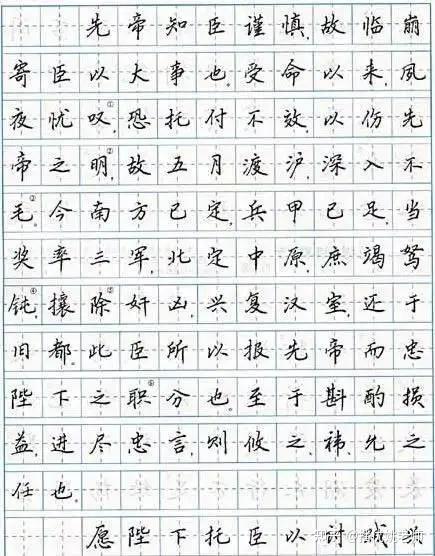 先帝知臣谨慎,故临崩
寄臣以大事也。受命以来,夙
夜忧叹①,恐托付不效,以伤先
帝之明②,故五月渡泸,深入不
毛。今南方已定,兵甲已足,当
奖率三军,北定中原,庶竭驽
钝④,攘除⑤奸凶,兴复汉室,还于
旧都。此臣所以报先帝而忠
陛下之职⑥分也。至于斟酌损
益,进尽忠言,则攸之、祎、允之
任也。
愿陛下托臣以讨贼兴
知乎